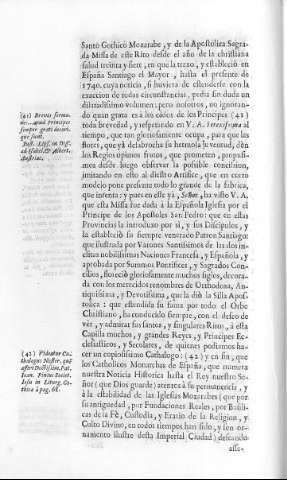 Santo Gothico Mozarabe, y de la Apostolica Sagra-
da Missa de este Rito desde el año de la christiana
salud treinta y siete, en que la traxo, y estableciò en
España Santiago el Mayor, hasta el presente de
1740. cuya noticia, si huviera de estenderse con la
exaccion de todas circunstancias, pedia sin duda un
dilatadissimo volumen: pero nosotros, no ignoran-
do quan grata es à los oídos de los Principes (41)
toda brevedad, y respetando en V. A.
tiempo, que tan gloriosamente ocupa, para que las
flores, que yà debaxo de su hermosa Juventud, dèn
los Regios opimos frutos, que prometen, propusi-
mos desde luego observar la possible concission,
imitando en esto al diestro Artifice, que en corto
modelo pone presente todo lo grande de la fabrica,
que intenta: y pues en este yà, Señor, ha visto V. A.
que esta Missa fue dada à la Española Iglesia por el
Principe de los Apostoles San Pedro: que en estas
Provincias la introduxo por sì, y sus Discipulos, y
la estableciò su siempre venerado Patron Santiago:
que ilustrada por Varones Santissimos de las dos in-
clitas nobilissimas Naciones Francesa, y Española, y
aprobada por Summos Pontifices, y Sagrados Con-
cilios, floreciò gloriosamente muchos siglos, decora-
da con los merecidos renombres de Orthodoxa, An-
tiquissima, y Devotissima, que la diò la Silla Apos-
tolica: que estendida su fama por todo el Orbe
Christiano, ha conducido siempre, con el deseo de
vèr, y admirar sus santos, y singulares Ritos, à esta
Capilla muchos, y grandes Reyes, y Principes Ec-
clesiasticos, y Seculares, de quienes postamos ha-
cer un copiosissimo Cathalogo: (42) y en fin, que
los Catholicos Monarchas de España, que numera
nuestra Noticia Historica hasta el Rey nuestro Se-
ñor (que Dios guarde) atentos à su permanencia, y
à la estabilidad de las Iglesias Mozarabes (que por
su antiguedad, por Fundaciones Reales, por Basili-
cas de la Fè, Custodia, y Erario de la Religion, y
Culto Divino, en todos tiempos han sido, y son or-
namento ilustre desta Imperial Ciudad) deseando
asse-
(41) Brevis sermo
apud Principes
semper grati
que sunt.
(42)
Joan. Pinius Bolland.
Iesu in Liturg. Go-
thica à pag. 68.